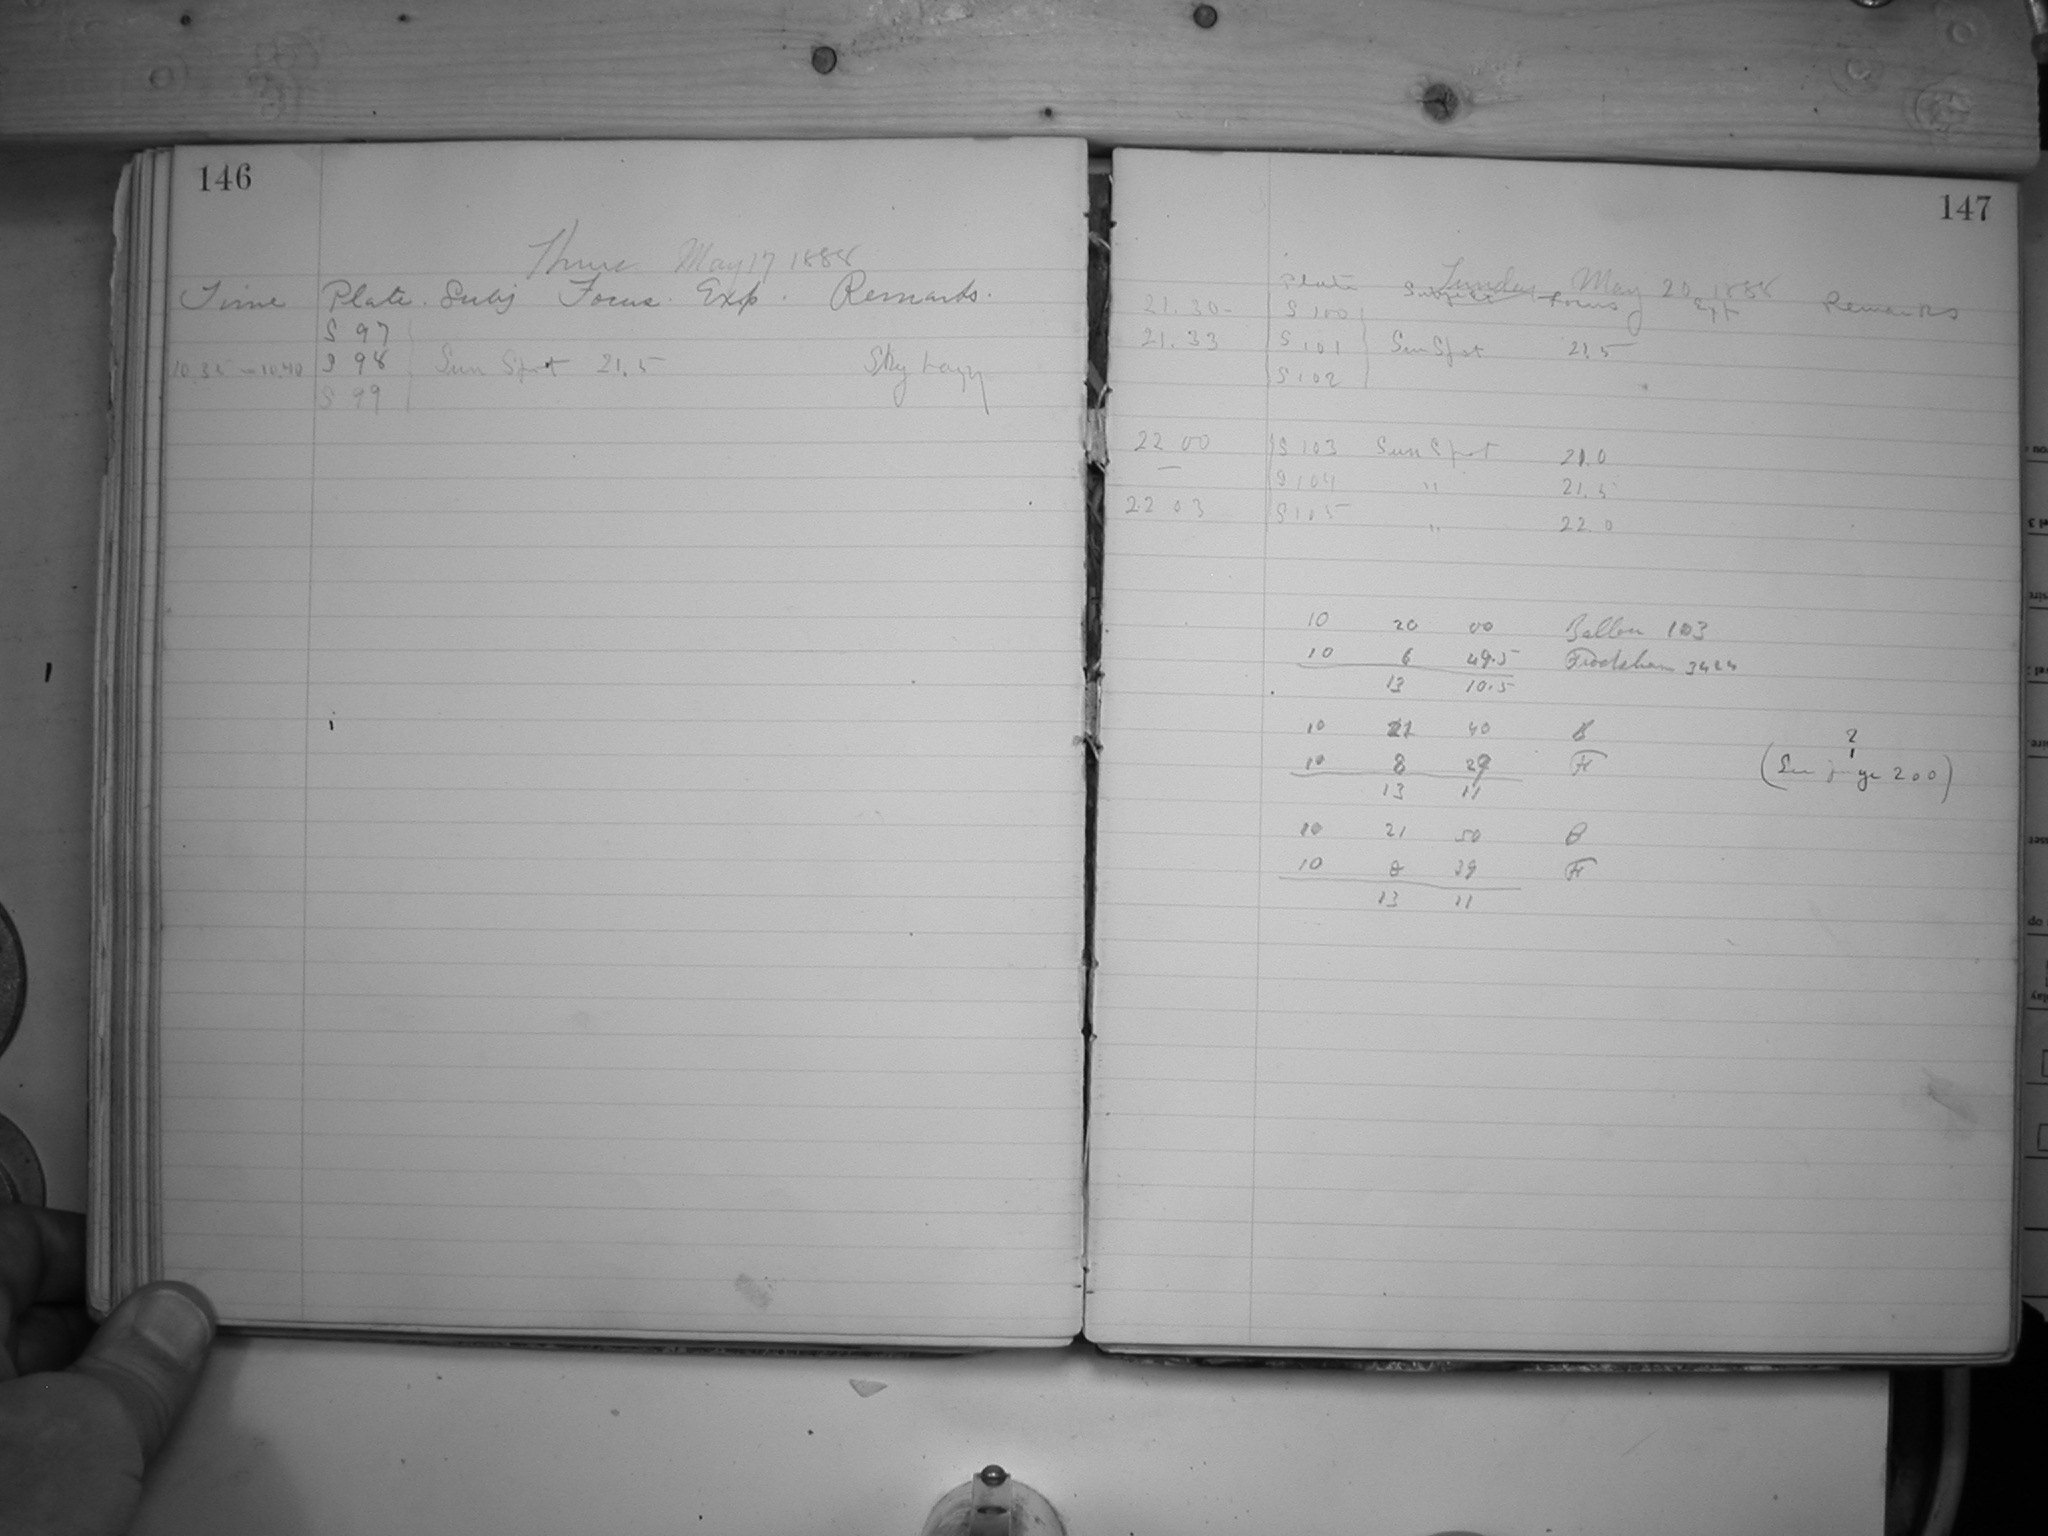 146
Thurs. May 17 1888
Time Plate. Subj Focus. Exp. Remarks.
S 97
10.35 - 10.40 S 98 Sun Spot 21.5 Sky hazy
S 99
147
Sunday May 20, 1888
Plate Subject Focus Exp Remarks
21.30- S 100
21.33 S 101 Sun Spot 21.5
S 102
22 00 S 103 Sun Spot 21.0
— S 104 " 21.5
22 03 S 105 " 22.0
10 20 00 103
10 6 49.5 Frodsham 3424
13 10.5
10 21 40 B
10 8 29 F
13 11
2
(See page 200)
10 21 50 B
10 8 39 F
13 11